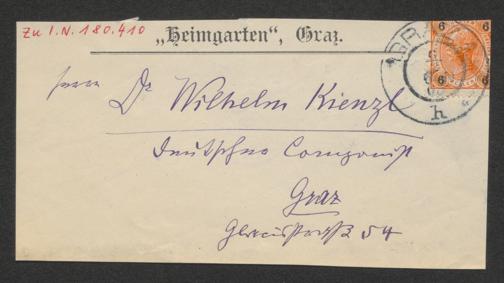 Zu I.N. 180.410
„Heimgarten“, Graz.
GRAZ
6 6
6 6
h
Herrn
Dr Wilhelm Kienzl
deutscher Componist
Graz
54